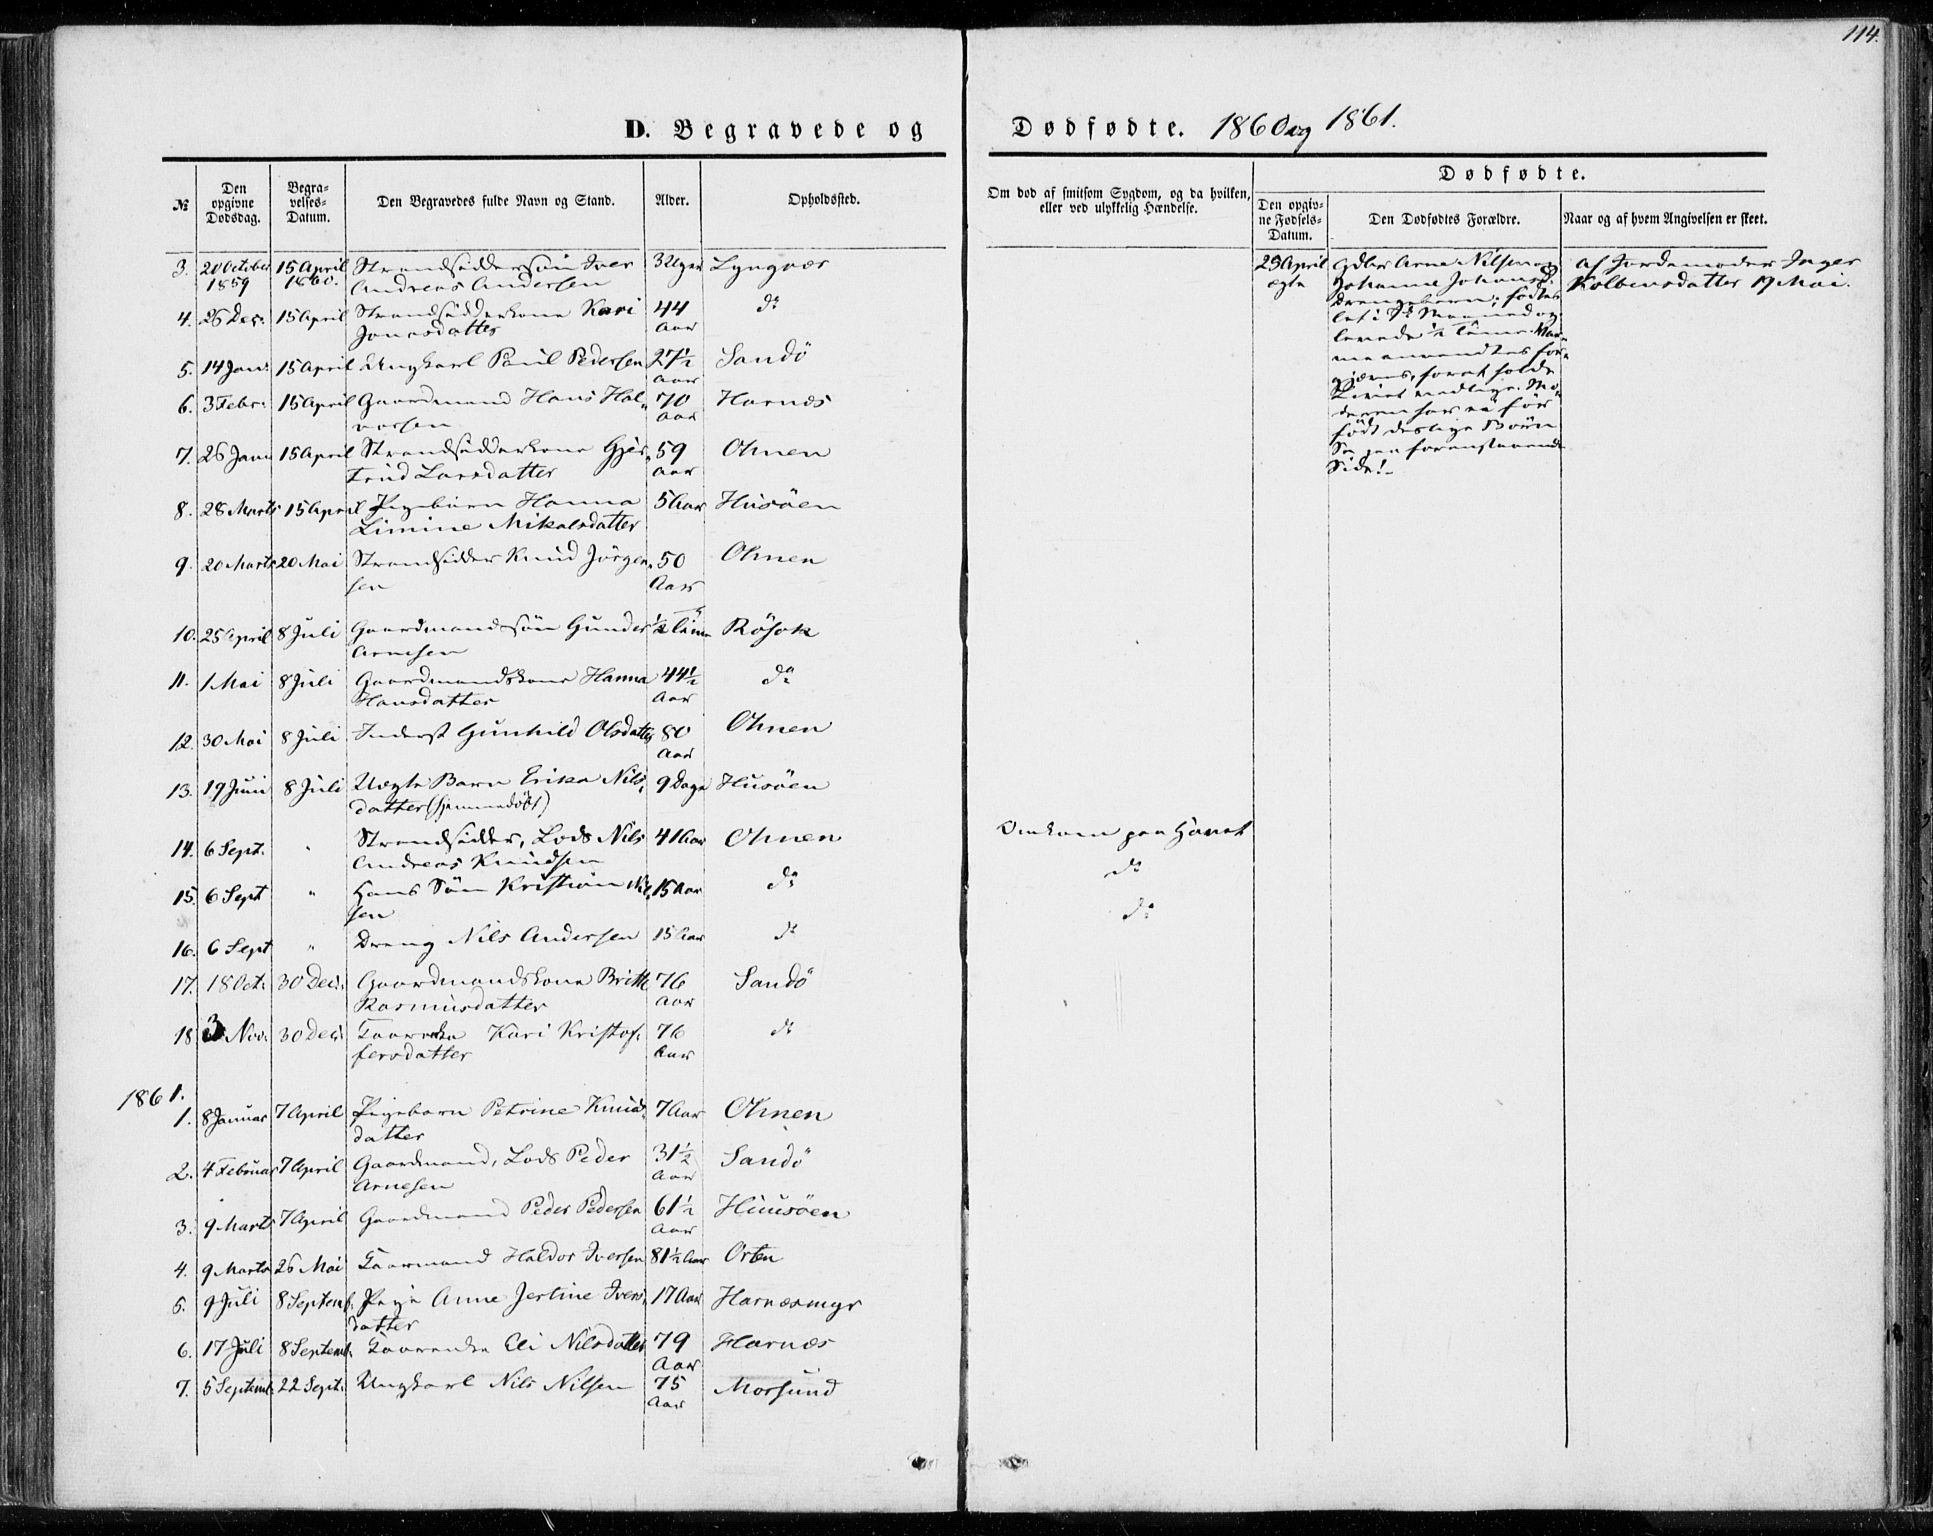 114.
D. Begravede og Dødfødte. 1860 og 1861.
№
Den opgivne Dødsdag.
Begravelses-Datum.
Den Begravedes fulde Navn og Stand.
Alder.
Opholdssted.
Om død af smitsom Sygdom, og da hvilken, eller ved ulykkelig Hændelse.
Dødfødte.
Den opgivne Fødsels-Datum.
Den Dødfødtes Forældre.
Naar og af hvem Angivelsen er skeet.
3. 20 October 1859 15 April 1860. Strandsiddersøn Iver Andreas Andersen 3 Uger Lyngvær
4. 26 Dec. 15 April Strandsidderkone Kari Jonasdatter 44 Aar do
5. 14 Jan: 15 April Ungkarl Paul Pedersen 27½ Aar Sandö
6. 3 Febr. 15 April Gaardmand Hans Halvorsen 70 Aar Harnæs
7. 26 Janu 15 April Strandsidderkone Gjertrud Larsdatter 59 Aar Ohnen
8. 28 Marts 15 April Pigebarn Hanna Limine Mikalsdatter 5 Aar Husöen
9. 20 Marts 20 Mai Strandsidder Knud Jörgensen 50 Aar Ohnen
10. 25 April 8 Juli Gaardmandssön Gunder Arnesen ½ Time Rösok
11. 1 Mai 8 Juli Gaardmandskone Hanna Hansdatter 44½ Aar do
12. 30 Mai 8 Juli Inderst Gunhild Olsdatter 80 Aar Ohnen
13. 19 Juni 8 Juli Uægte Barn Erika Nilsdatter (hjemmedöbt) 9 Dage Husöen
14. 6 Sept. " Strandsidder, Lods Nils Andreas Knudsen 41 Aar Ohnen Omkom paa Havet
15. 6 Sept " Hans Søn Kristian Nilsen 15 Aar do do
16. 6 Sept " Dreng Nils Andersen 15 Aar do do
17. 18 Oct. 30 Dec. Gaardmandskone Britte Rasmusdatter 76 Aar Sandö
18 3 Nov. 30 Dec. Kari Kristoffersdatter 76 Aar do
1861.
1. 8 Januar 7 April Pigebarn Petrine Knudsdatter 7 Aar Ohnen
2. 4 Februar 7 April Gaardmand, Lods Peder Arnesen 31½ Aar Sandö
3. 9 Marts 7 April Gaardmand Peder Pedersen 61½ Aar Huusöen
4. 9 Marts 26 Mai Haldor Iversen 81½ Aar Orten
5. 9 Juli 8 Septemb. Pige Anne Jertine Iversdatter 17 Aar Harnæsmyr
6. 17 Juli 8 Septemb. Eli Nilsdatter 79 Aar Harnæs
7. 5 Septemb. 22 Sept. Ungkarl Nils Nilsen 75 Aar Morsund
23 April
ægte
Gdbr Arne Nilsen og
Johanne Johansd.
Drengebarn; födtes
i 7de Maaned og
levede ½ Time.
anvendtes for-
gjæves, forat holde
Livet vedlige. Mo-
deren har før
födt deslige Börn
Se paa foranstaaende
Side!
af Jordemoder Inger
Kolbensdatter 19 Mai.